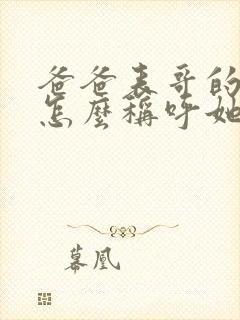 爸爸表哥的
怎麼稱呼她
幕凰